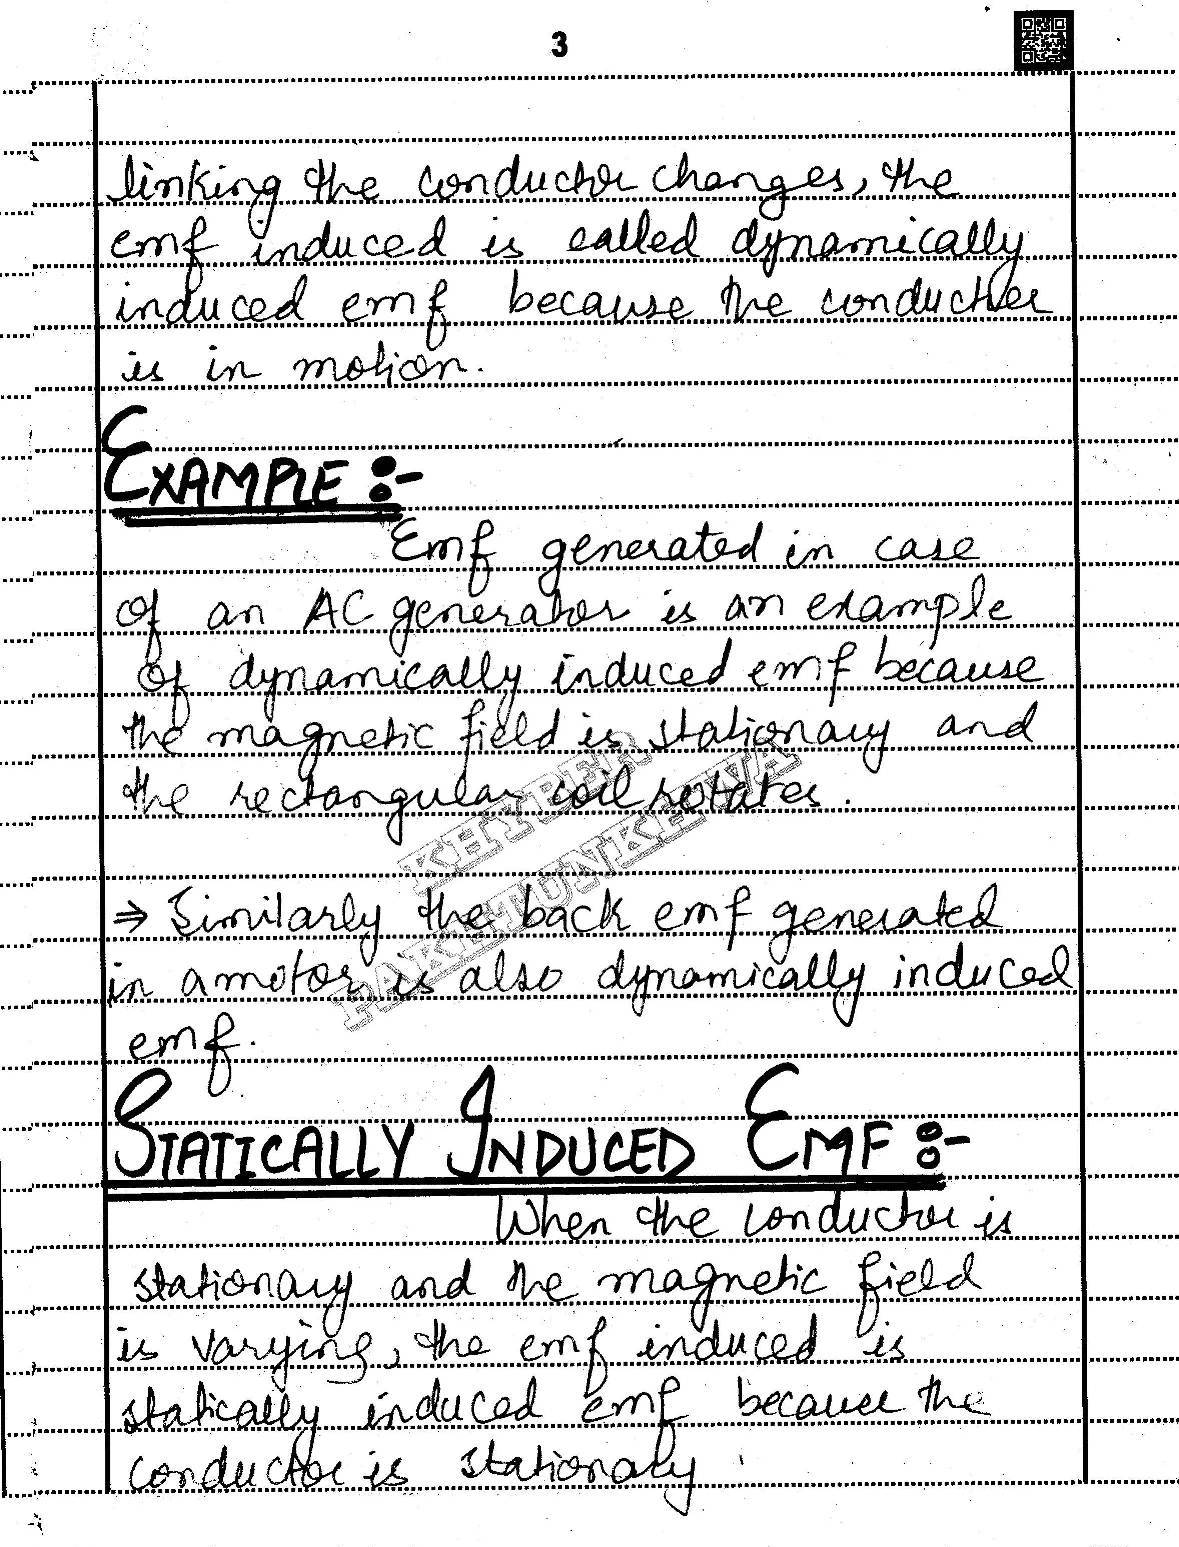 3
linking the conductor changes, the
emf induced is called dynamically
induced emf because the conductor
is in motion.
EXAMPLE :-
Emf generated in case
of an AC generator is an example
of dynamically induced emf because
the magnetic field is stationary and
the rectangular coil rotates.
KHYBER
PAKHTUNKHWA
⇒ Similarly the back emf generated
in a motor is also dynamically induced
emf.
STATICALLY INDUCED EMF :-
When the conductor is
stationary and the magnetic field
is varying, the emf induced is
statically induced emf because the
conductor is stationary